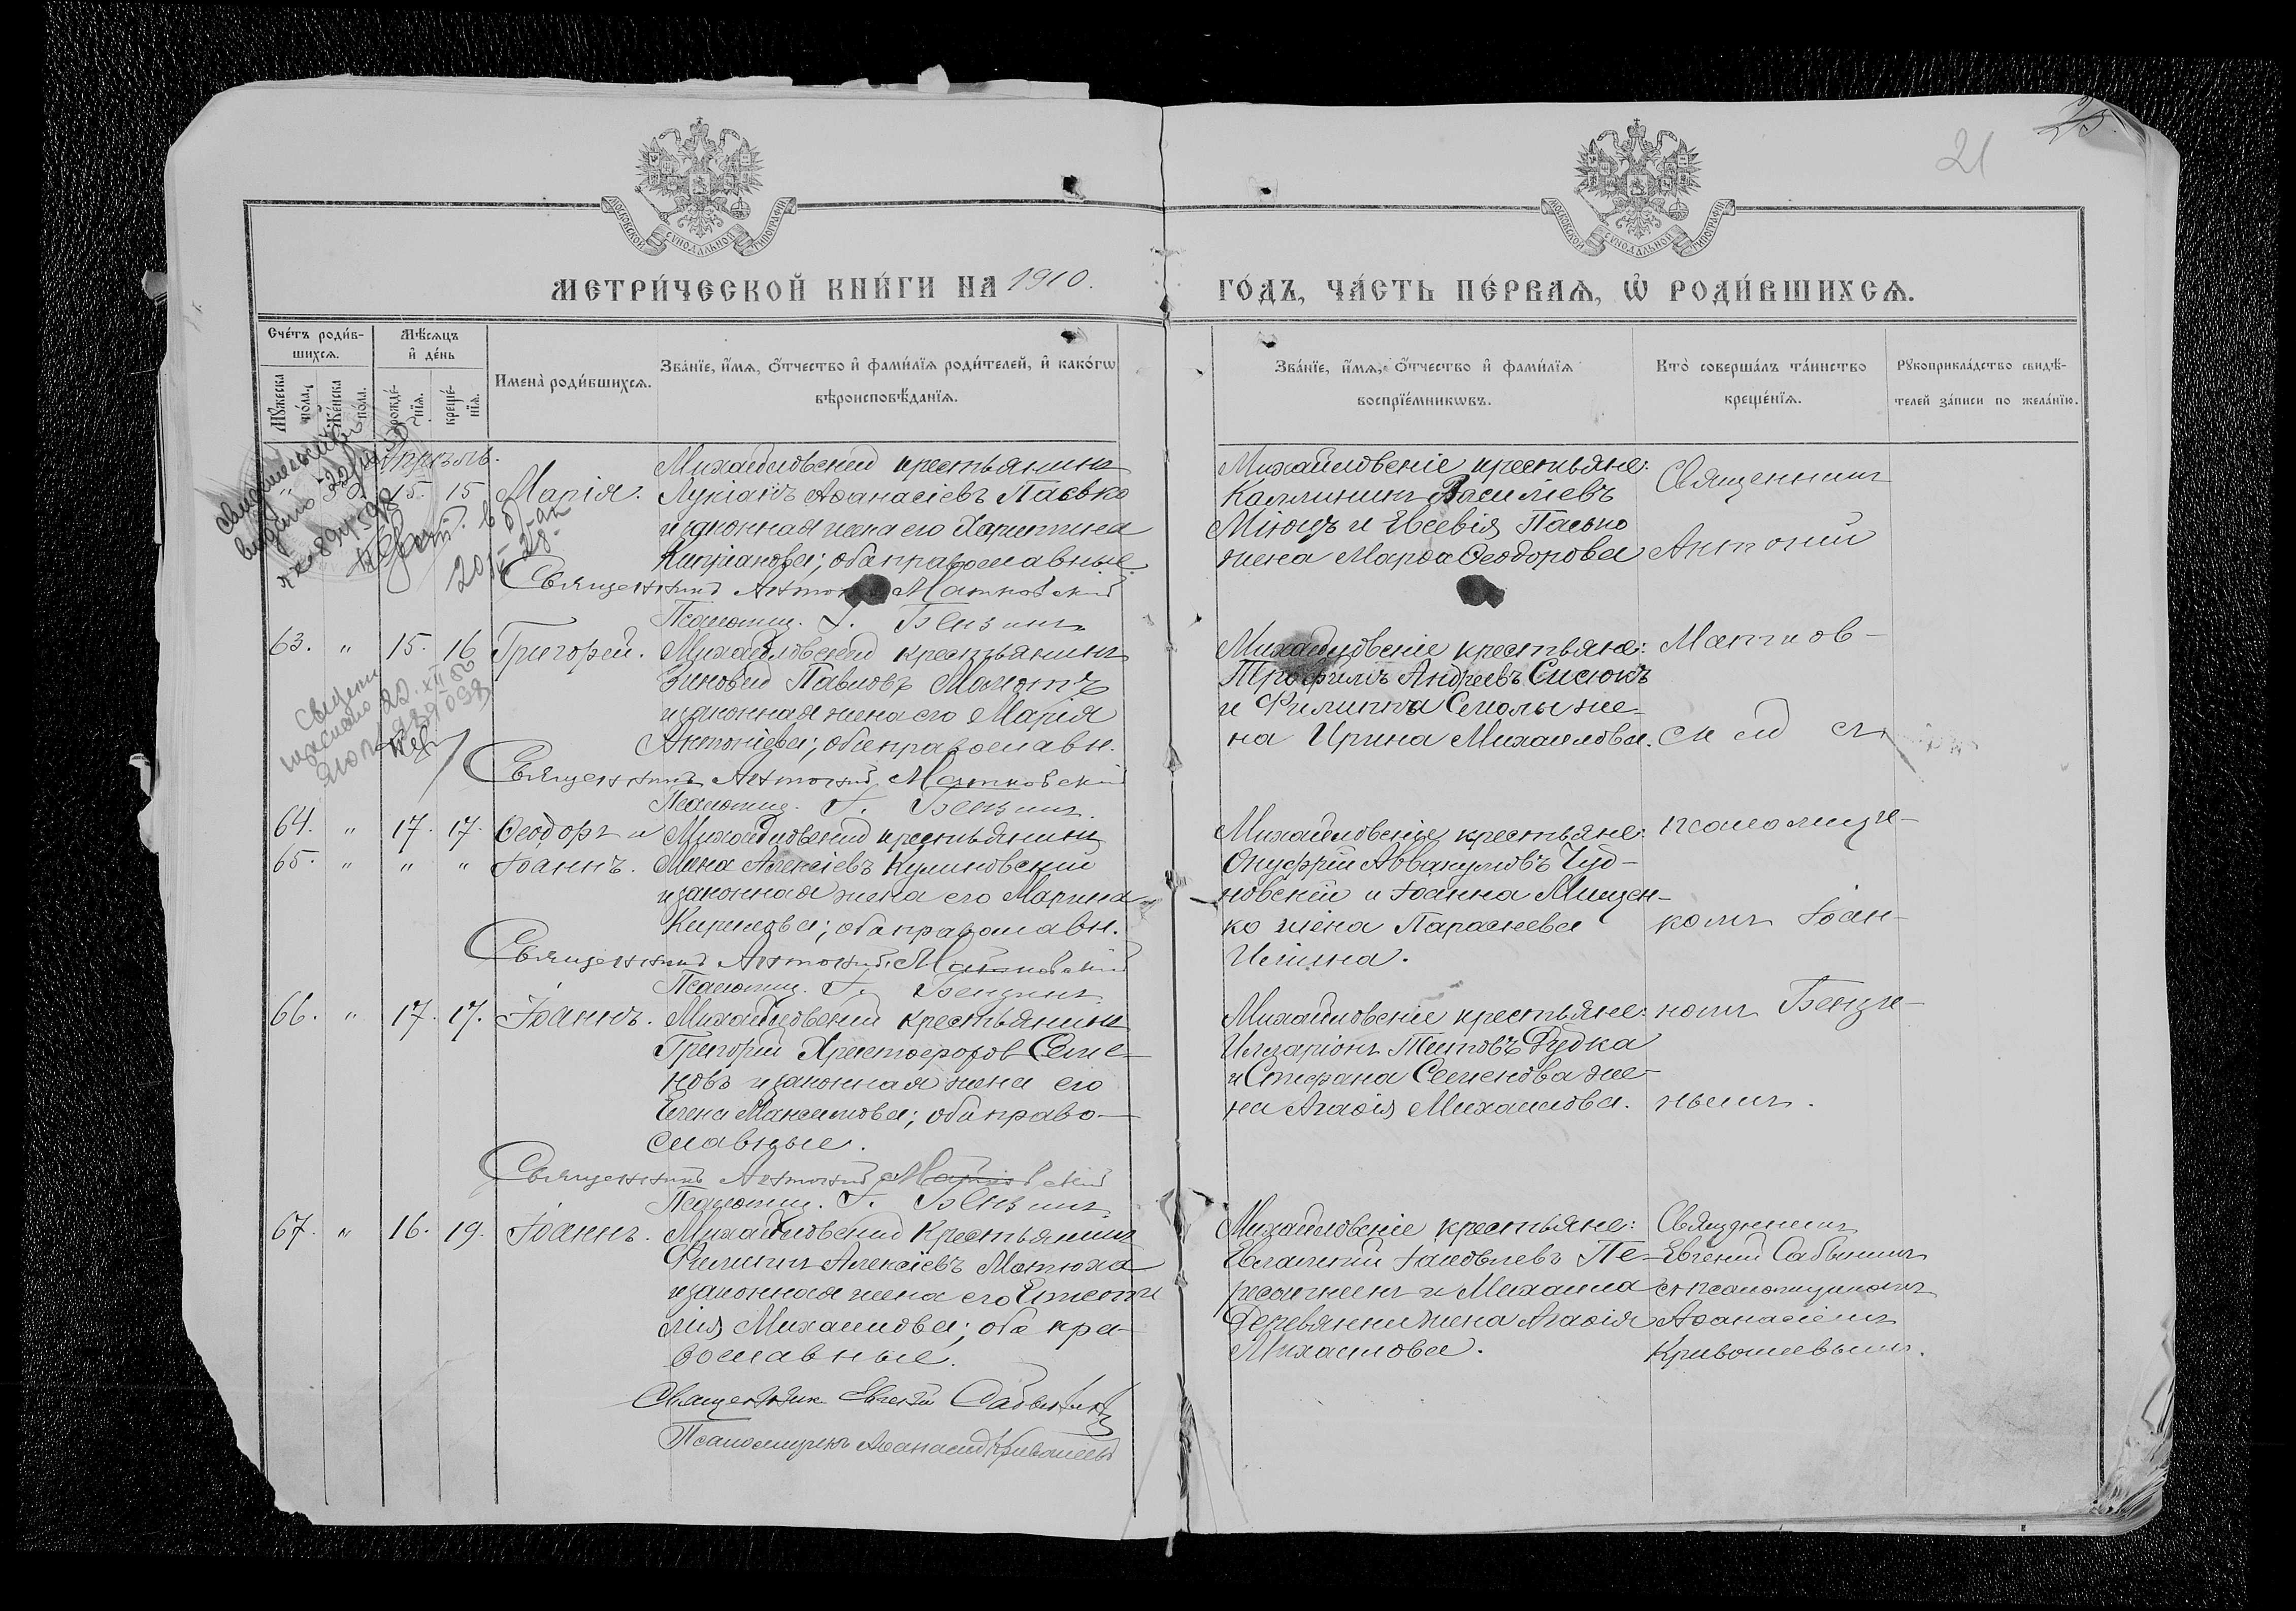 21
25.
МОСКОВСКОЙ СѴНОДАЛЬНОЙ ТИПОГРАФІИ
МОСКОВСКОЙ СѴНОДАЛЬНОЙ ТИПОГРАФІИ
МЕТРИ́ЧЕСКОЙ КНИ́ГИ НА 1910.
ГО́ДЪ, ЧА́СТЬ ПЕ́РВАѦ, Ѡ҆ РОДИ́ВШИХСѦ.
Сче́тъ роди́в-
шихсѧ.
Мꙋ́жеска пола̀.
Же́нска пола.
Мѣ́сѧцъ
и҆ де́нь
рожде́-
нїѧ.
креще́-
нїѧ.
И҆мена̀ роди́вшихсѧ.
Зва́нїе, и҆́мѧ, ѻ҆́тчество и҆ фами́лїѧ роди́телей, и҆ како́гѡ
вѣроисповѣ́данїѧ.
Зва́нїе, и҆́мѧ, ѻ҆́тчество и҆ фами́лїѧ
воспрїе́мникѡвъ.
Кто̀ соверша́лъ та́инство
креще́нїѧ.
Рꙋкоприкла́дство свидѣ́-
телей за́писи по жела́нїю.
Апрѣль.
" 15. 15 Марія.
Михайловскій крестьянинъ
Лукіанъ Аѳанасіевъ Пасько
и законная жена его Харитина
Кипріанова; оба православные.
Священникъ Антоній Матковскій
Псаломщ. І. Бензинъ
Михайловскіе крестьяне:
Каллиникъ Василіевъ
и Евсевія Пасько
жена Марѳа Ѳеодорова
Священникъ
Антоній
63. " 15. 16 Григорій.
Михайловскій крестьянинъ
Зиновій Павловъ Молотъ
и законная жена его Марія
Антоніева; оба православн.
Священникъ Антоній Матковскій
Псаломщ. І. Бензинъ.
Михайловскіе крестьяне:
Трофимъ Андреевъ Сисюкъ
и Филиппа Семолы же-
на Ирина Михаилова.
Матков-
скій съ
64. " 17. 17. Ѳеодоръ и
65. " " " Іоаннъ.
Михайловскій крестьянинъ
Мина Алексіевъ Кулиновскій
и законная жена его Марина
оба православн.
Священникъ Антоній Матковскій
Псаломщ. І. Бензинъ.
Михайловскіе крестьяне:
Онуфрій Аввакумовъ Чуд-
новскій и Іоанна Мищен-
ко жена Параскева
Ильина.
псаломщи-
комъ Іоан-
66. " 17. 17. Іоаннъ.
Михайловскій крестьянинъ
Григорій Христофоровъ Семе-
новъ и законная жена его
Елена Максимова; оба право-
славные.
Священникъ Антоній Матковскій
Псаломщ. І. Бензинъ.
Михайловскіе крестьяне:
Иларіонъ Титовъ Дудка
и Стефана Семенова же-
на Агаѳія Михаилова.
номъ Бензи-
нымъ.
67. " 16. 19. Іоаннъ.
Михайловскій крестьянинъ
Филиппъ Алексіевъ Матюха
и законная жена его
Михаилова; оба пра-
вославные.
Священникъ Евгеній Сабынинъ
Псаломщикъ Аѳанасій Кривошеевъ
Михайловскіе крестьяне:
Евлампій Іаковлевъ Пе-
и Михаила
Деревянки жена Агаѳія
Михаилова.
Священникъ
Евгеній Сабынинъ
съ псаломщикомъ
Аѳанасіемъ
Кривошеевымъ.